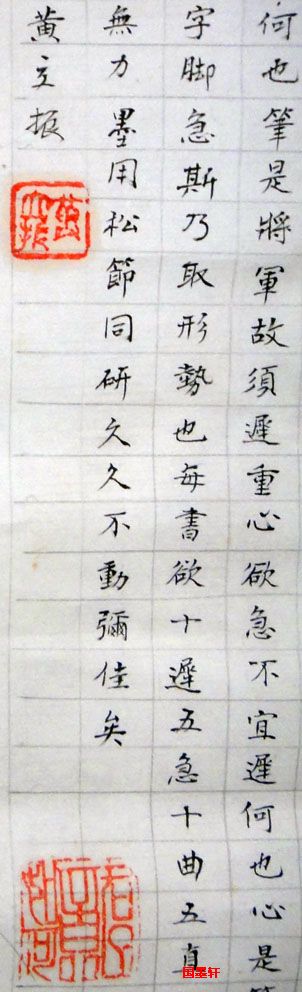 何也筆是將軍故須遲重心欲急不宜遲何也心是
字脚急斯乃取形勢也每書欲十遲五急十曲五直
無力墨用松節同研久久不動彌佳矣
黄立振
国墨轩